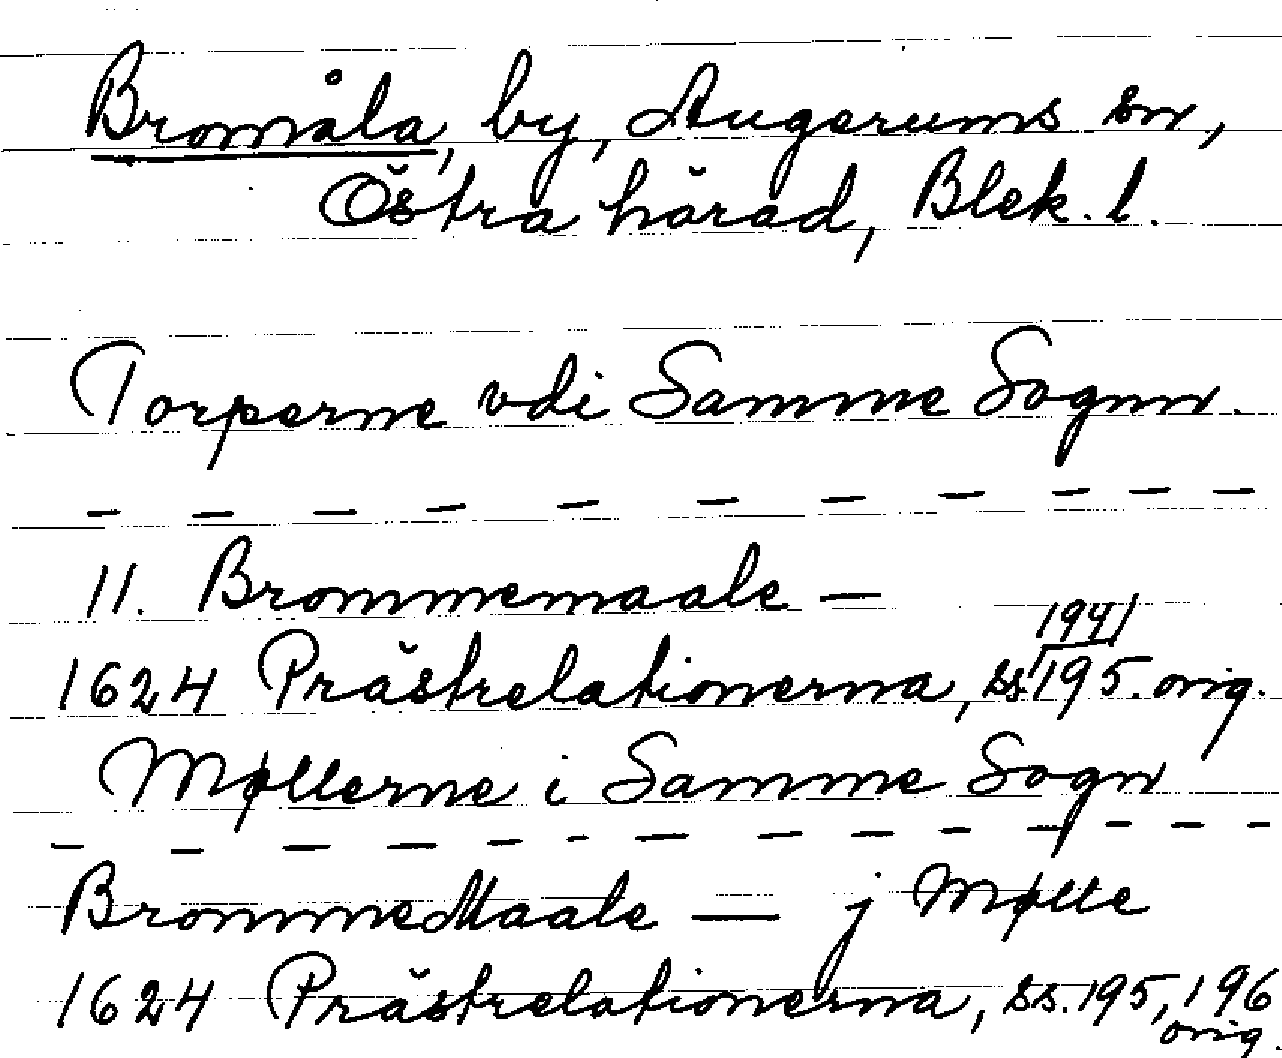 Bromåla, by, Augerums sn,
Östra härad, Blek. l.
Torperne vdi Samme Sognn.
— — — — — — — — — —
11. Brommemaale —
1624 Prästrelationerna, ss. 194, 195. orig.
Møllerne i Samme Sogn
— — — — — - — — — — — — — —
BrommeMaale — j Mølle
1624 Prästrelationerna, ss. 195, 196
orig.